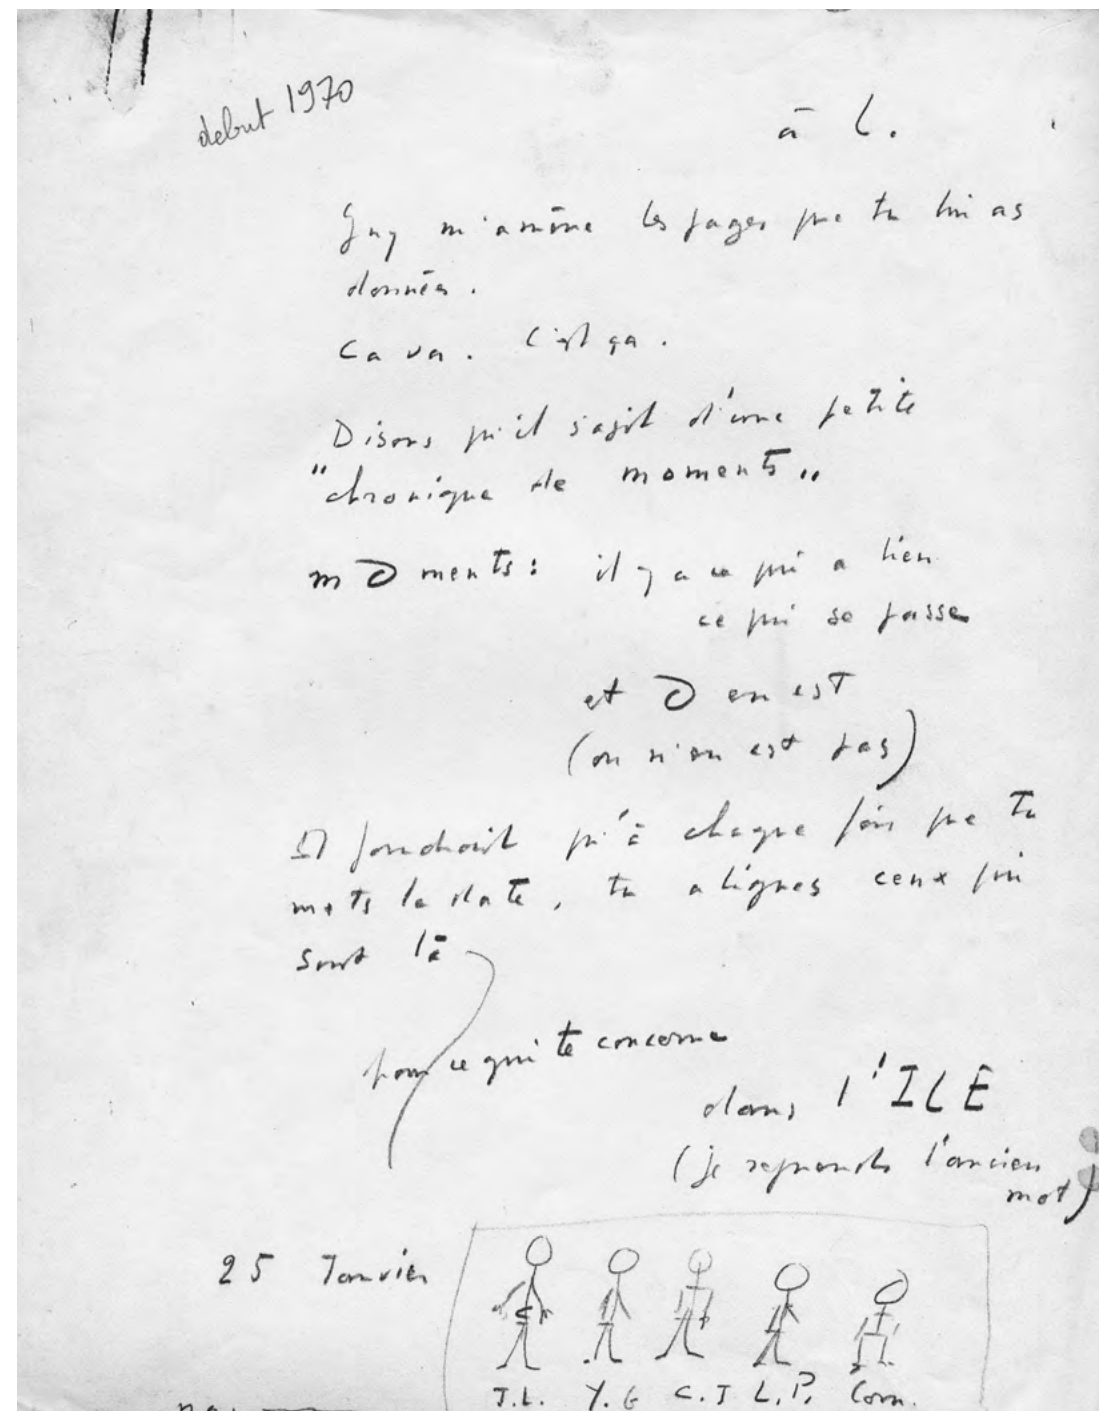 debut 1970
à L.
Guy m'amène les pages que tu lui as
données.
Ca va. C'est ça.
Disons qu'il s'agit d'une petite
"chronique de moments"
mOments : il y a ce qui a lieu
ce qui se passe
et O en est
(on n'en est pas)
Il faudrait qu'à chaque fois que tu
mets la date, tu alignes ceux qui
sont là
pour ce qui te concerne
dans l'ILE
(je reprends l'ancien
mot)
25 Janvier
J.L. Y.G C.J L.P. Corn.